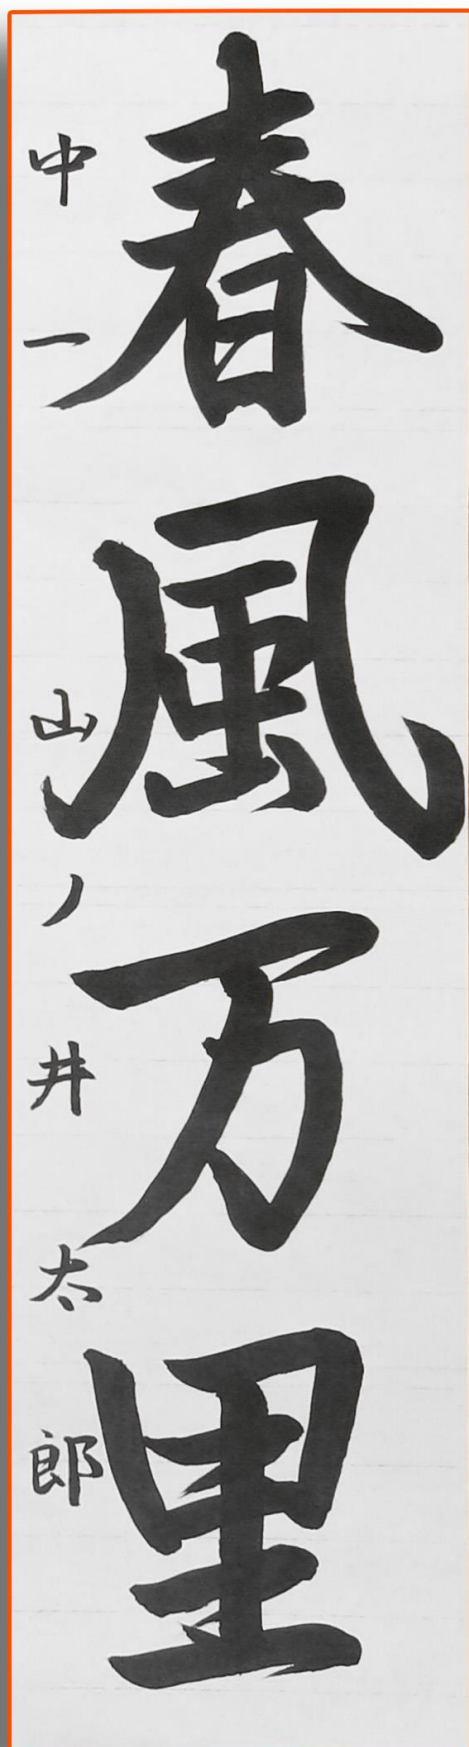 春風万里
中一 山ノ井太郎